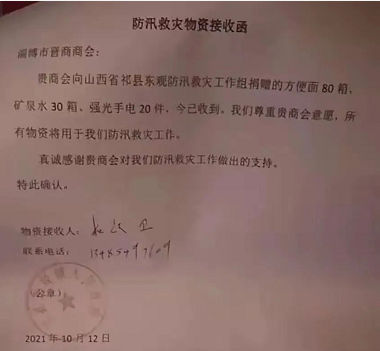 防汛救灾物资接收函
淄博市晋商商会：
贵商会向山西省祁县东观防汛救灾工作组捐赠的方便面 80 箱、
矿泉水 30 箱、强光手电 20 件，今已收到。我们尊重贵商会意愿，所
有物资将用于我们防汛救灾工作。
真诚感谢贵商会对我们防汛救灾工作做出的支持。
特此确认。
物资接收人：
联系电话：
（公章）
2021 年 10 月 12 日